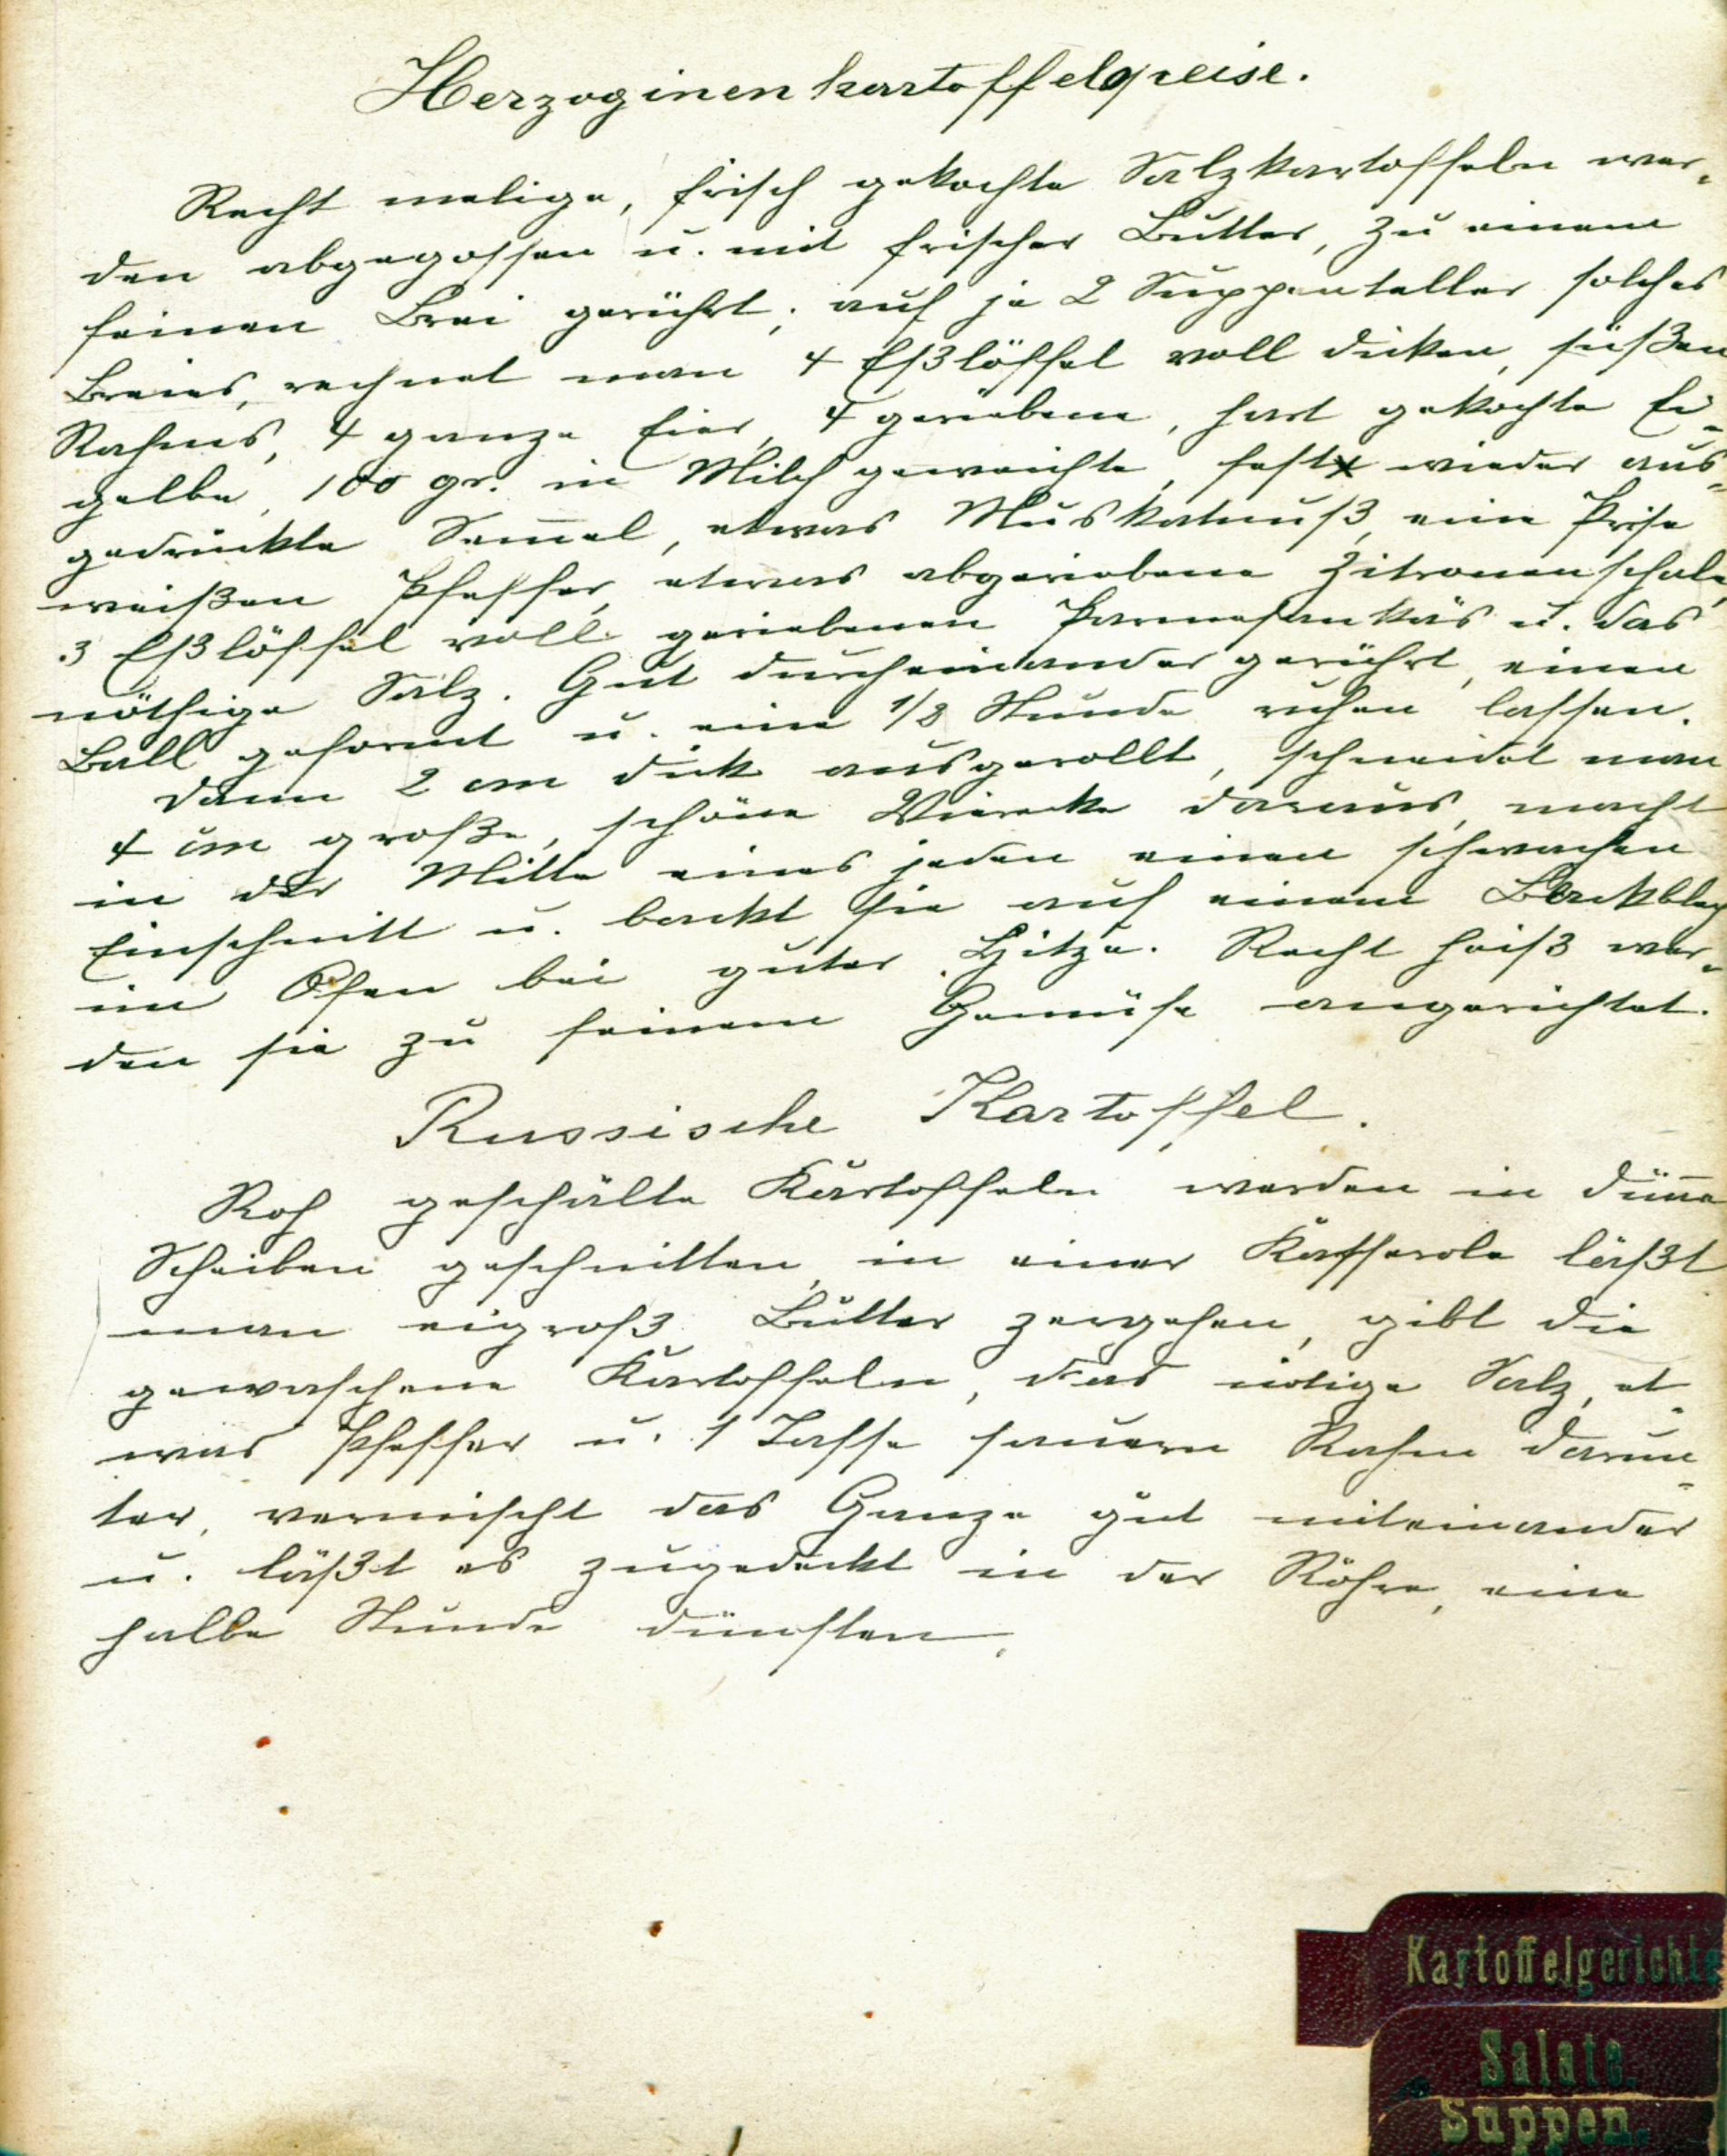 Herzoginenkartoffelspeise.
Recht melige, frisch gekochte Salzkartoffeln wer-
den abgegossen u. mit frischer Butter, zu einem
feinen Brei gerührt; auf je 2 Suppenteller solches
Breies, rechnet man 4 Eßlöffel voll dicken, süßen
Rahms, 4 ganze Eier, 4 geriebene, hart gekochte Ei-
gelbe, 100 gr. in Milch geweichte, fest wieder aus-
gedrückte Sem̅el, etwas Muskatnuß, eine Prise
weißen Pfeffer, etwas abgeriebene Zitronenschale,
3 Eßlöffel voll geriebenen Parmesankäs u. das
nöthige Salz. Gut durcheinander gerührt, einen
Ball geformt u. eine 1/2 Stunde ruhen lassen.
Dann 2 cm dick ausgerollt, schneidet man
4 cm große, schöne Vierecke daraus, macht
in der Mitte eines jeden einen schwachen
Einschnitt u. backt sie auf einem Backblech
im Ofen bei guter Hitze. Recht heiß wer-
den sie zu feinem Gemüse angerichtet.
Russische Kartoffel.
Roh geschälte Kartoffeln werden in dün̅e
Scheiben geschnitten, in einer Kasserole läßt
man eigroß Butter zergehen, gibt die
gewaschene Kartoffeln, das nötige Salz, et-
was Pfeffer u. 1 Tasse sauern Rahm darun-
ter, vermischt das Ganze gut miteinander
u. läßt es zugedeckt in der Röhre, eine
halbe Stunde dünsten.
Kartoffelgerichte
Salate.
Suppen.